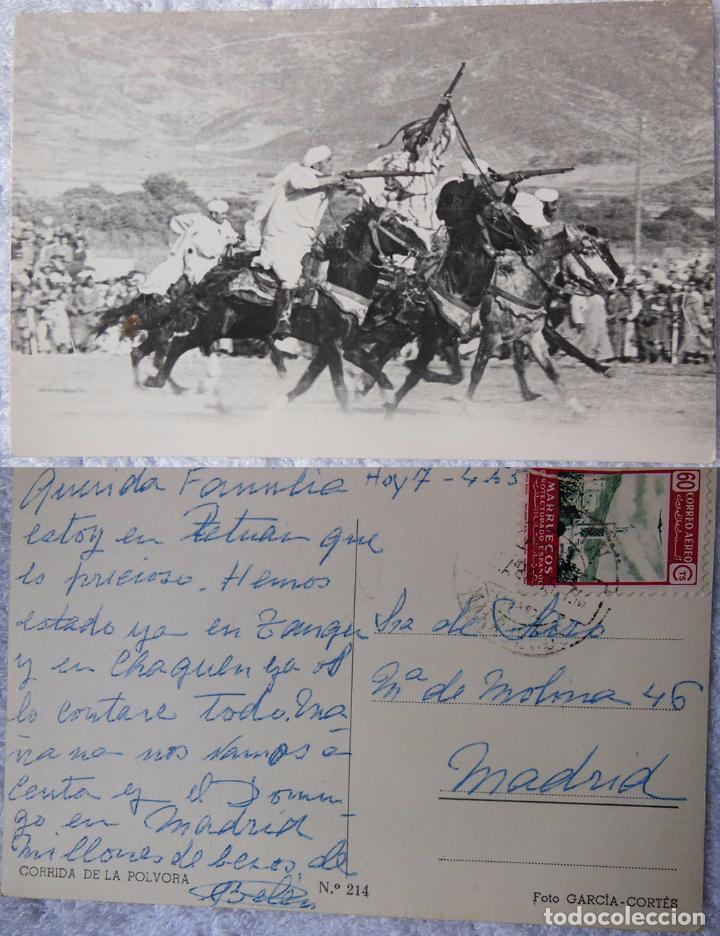 Querida Familia Hoy 7 - 4 - 53
estoy en Tetuan que
es precioso. Hemos
estado ya en Tanger
y en Chaguen ya os
lo contare todo. Ma
ñana nos vamos a
Ceuta y el Domin-
go en Madrid
Millones de besos de
Belén
CORRIDA DE LA POLVORA
N.º 214
60 CORREO AÉREO
MARRUECOS
PROTECTORADO ESPAÑOL
CTS
Sra de
Mª de Molina 46
Madrid
Foto GARCÍA-CORTÉS
todocoleccion